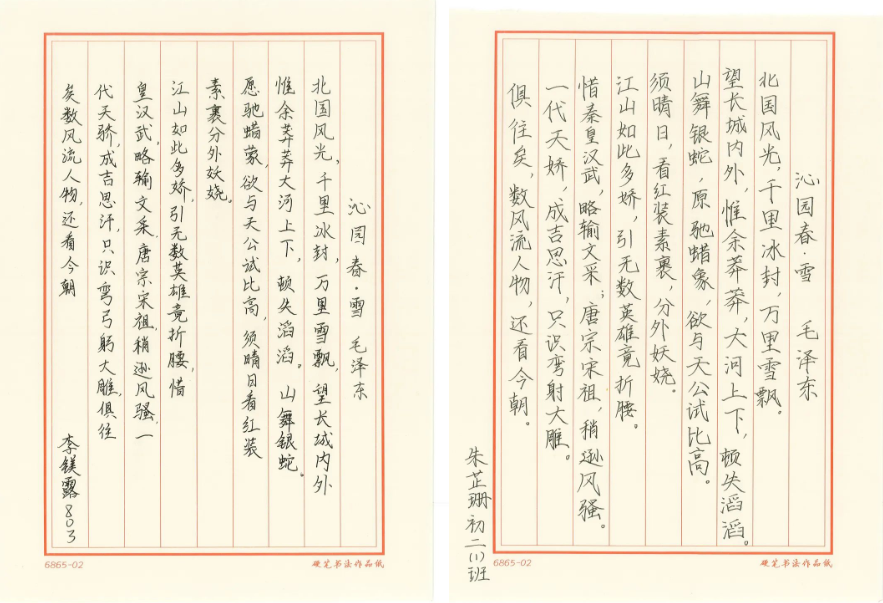 沁园春·雪 毛泽东
北国风光,千里冰封,万里雪飘,望长城内外
惟余莽莽大河上下,顿失滔滔。山舞银蛇。
愿驰蜡蒙,欲与天公试比高,须晴日看红装
素裹分外妖娆。
江山如此多娇,引无数英雄竞折腰,惜
皇汉武,略输文采,唐宗宋祖,稍逊风骚,一
代天骄,成吉思汗,只识弯弓躬大雕,俱往
矣数风流人物,还看今朝
李镁露803
6865-02
硬笔书法作品纸
沁园春·雪 毛泽东
北国风光,千里冰封,万里雪飘。
望长城内外,惟余莽莽,大河上下,顿失滔滔。
山舞银蛇,原驰蜡象,欲与天公试比高。
须晴日,看红装素裹,分外妖娆。
江山如此多娇,引无数英雄竞折腰。
惜秦皇汉武,略输文采;唐宗宋祖,稍逊风骚。
一代天娇,成吉思汗,只识弯射大雕。
俱往矣,数风流人物,还看今朝。
朱芷珊初二(1)班
6865-02
硬笔书法作品纸